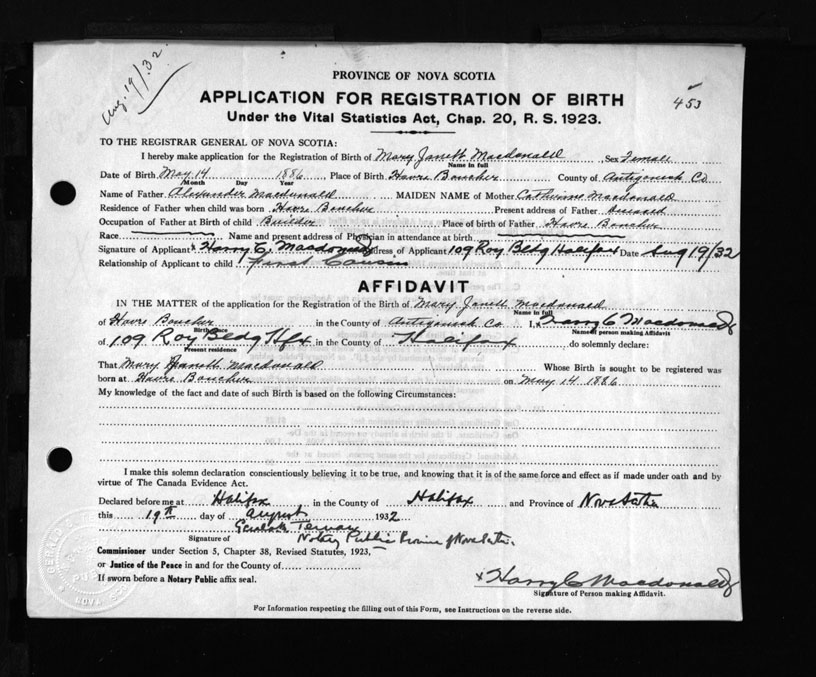 Aug. 19/32
PROVINCE OF NOVA SCOTIA
APPLICATION FOR REGISTRATION OF BIRTH
453
Under the Vital Statistics Act, Chap. 20, R. S. 1923.
TO THE REGISTRAR GENERAL OF NOVA SCOTIA:
I hereby make application for the Registration of Birth of Mary Janett Macdonald Sex Female
Name in full
Date of Birth May 14 1886 Place of Birth Havre Boucher County of Antigonish Co
Month Day Year
Name of Father Alexander Macdonald MAIDEN NAME of Mother Catherine Macdonald
Residence of Father when child was born Havre Boucher Present address of Father deceased
Occupation of Father at Birth of child Builder Place of birth of Father Havre Boucher
Race Name and present address of Physician in attendance at birth
Signature of Applicant Harry C. Macdonald Address of Applicant 109 Roy Bldg Halifax Date Aug 19/32
Relationship of Applicant to child first Cousin
AFFIDAVIT
IN THE MATTER of the application for the Registration of the Birth of Mary Janett Macdonald
Name in full
of Havre Boucher in the County of Antigonish Co I, x Harry C Macdonald
Birth place Name of person making Affidavit
of 109 Roy Bldg Hfx in the County of Halifax do solemnly declare:
Present residence
That Mary Janett Macdonald Whose Birth is sought to be registered was
born at Havre Boucher on May 14 1886
My knowledge of the fact and date of such Birth is based on the following Circumstances:
I make this solemn declaration conscientiously believing it to be true, and knowing that it is of the same force and effect as if made under oath and by
virtue of The Canada Evidence Act.
Declared before me at Halifax in the County of Halifax and Province of Nova Scotia
this 19th day of August 1932
Signature of Notary Public Province of Nova Scotia.
Commissioner under Section 5, Chapter 38, Revised Statutes, 1923,
or Justice of the Peace in and for the County of
If sworn before a Notary Public affix seal.
x Harry C Macdonald
Signature of Person making Affidavit.
For Information respecting the filling out of this Form, see Instructions on the reverse side.